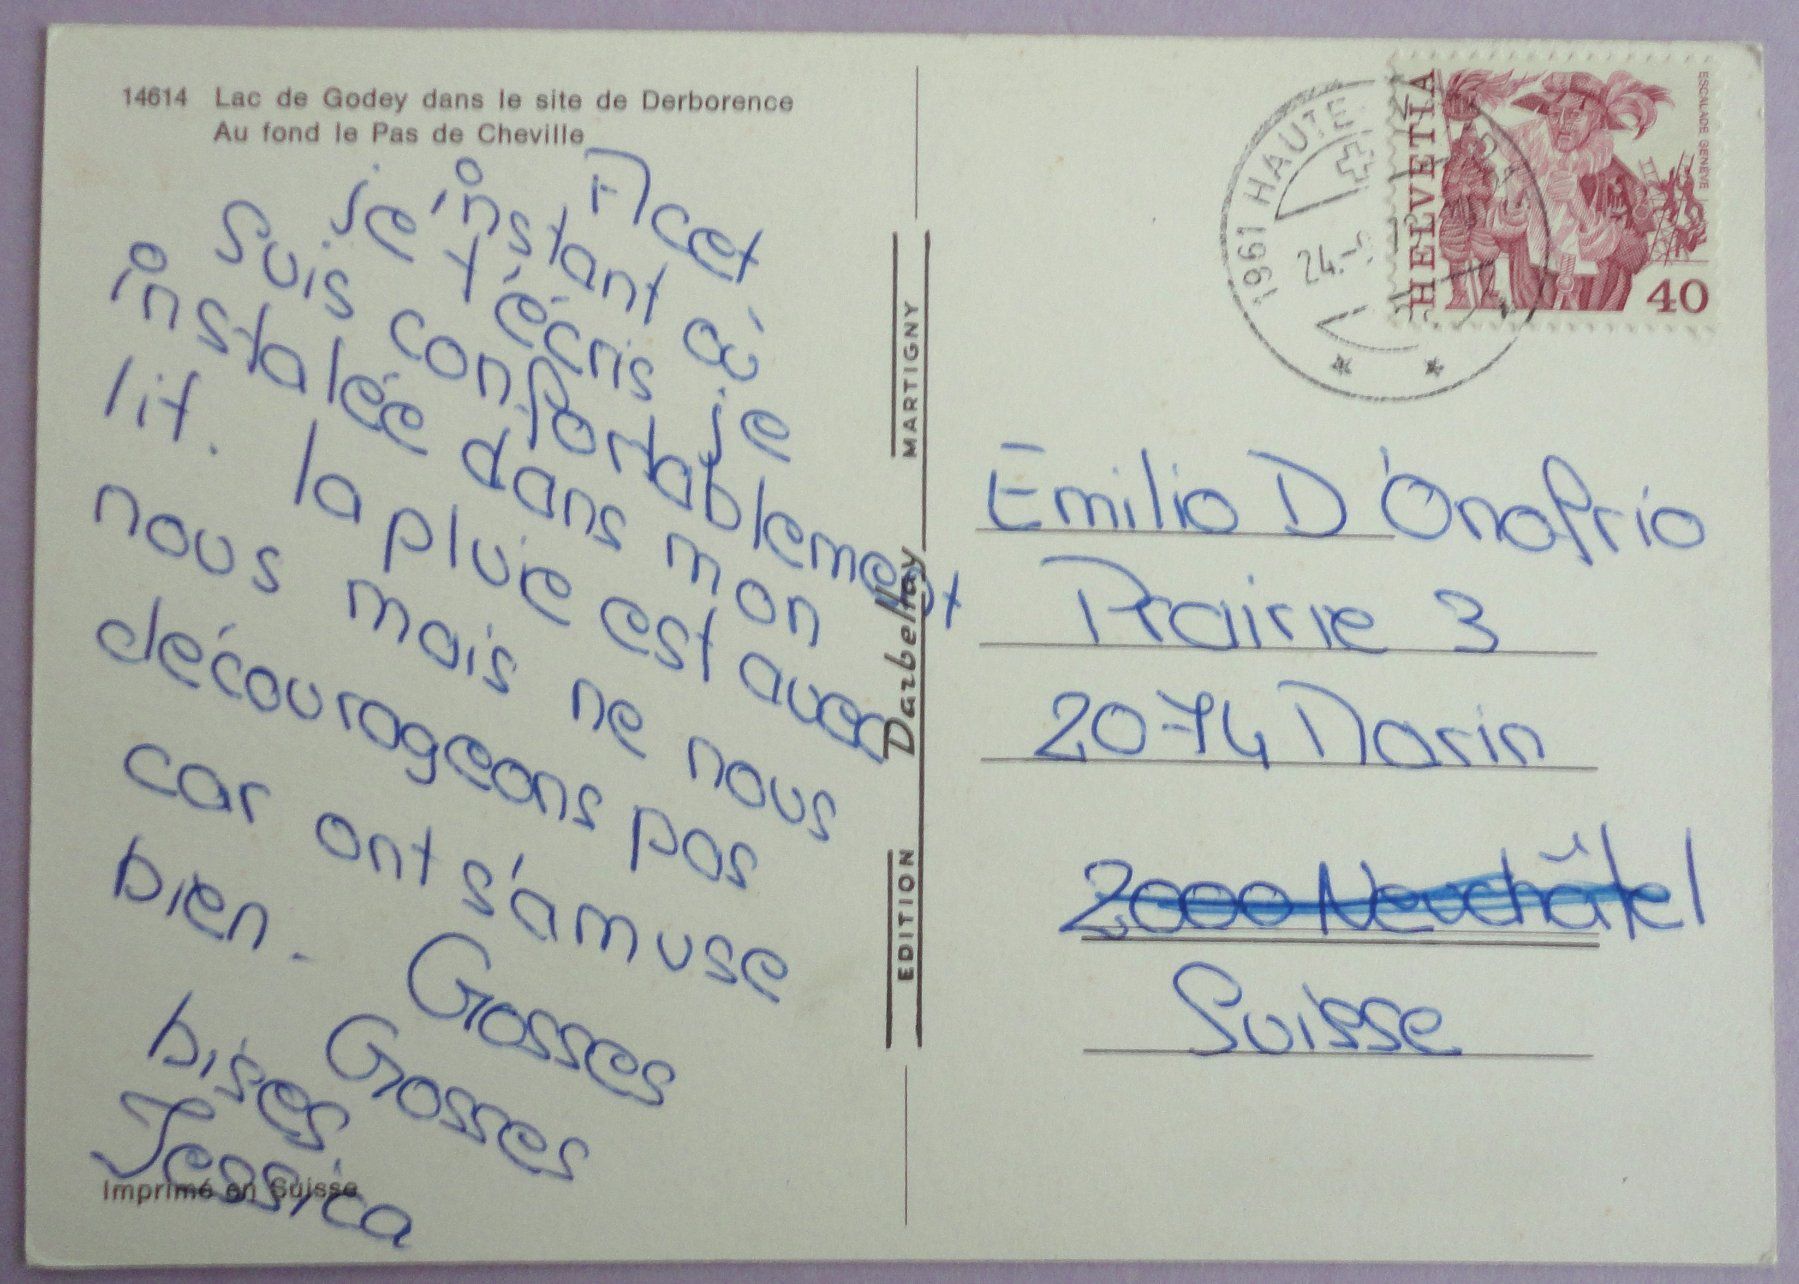 14614 Lac de Godey dans le site de Derborence
Au fond le Pas de Cheville
A cet
instant où
je t'écris je
suis confortablement
instalée dans mon
lit. la pluie est avec
nous mais ne nous
décourageons pas
car ont s'amuse
bien. Gosses
Gosses
bises.
Jessica
Imprimé en Suisse
EDITION Darbellay MARTIGNY
1961 HAUTE
24.
HELVETIA
ESCALADE GENÈVE
40
Emilio D'Onofrio
Prairie 3
2074 Marin
2000 Neuchâtel
Suisse